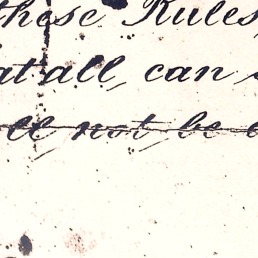 those Rules,
at all, can
ll not be